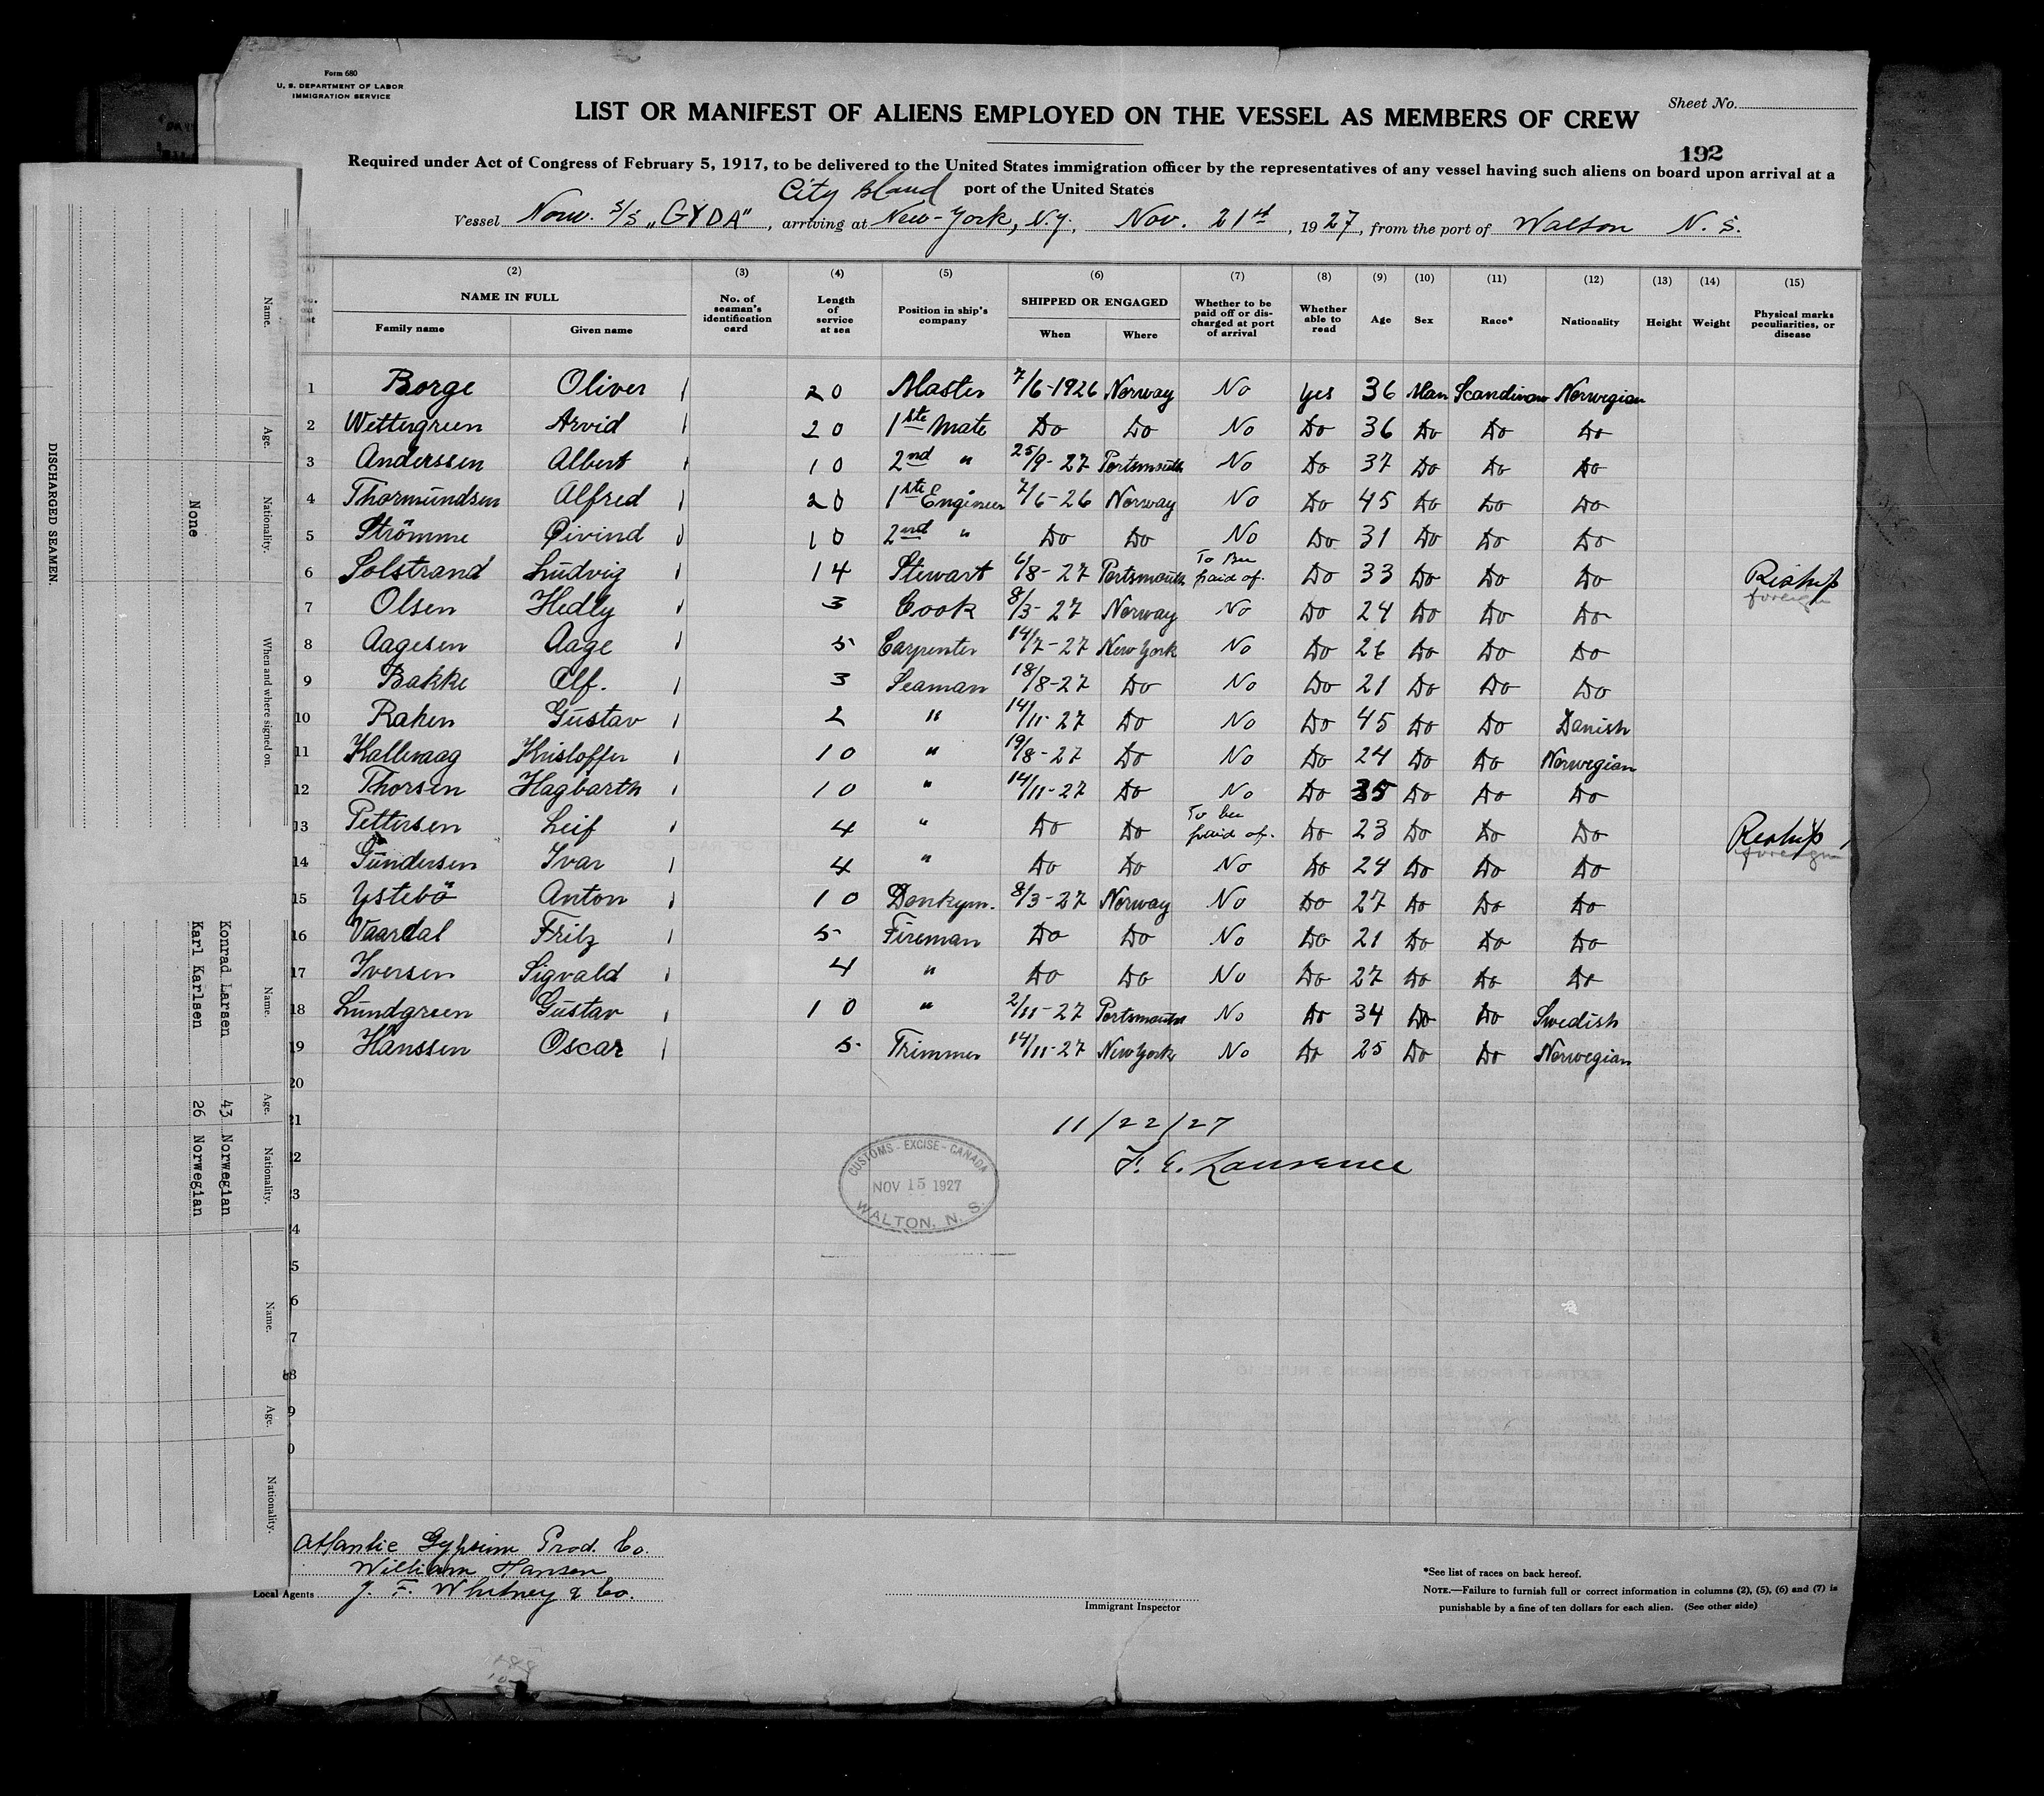 Form 680
U. S. DEPARTMENT OF LABOR
IMMIGRATION SERVICE
Sheet No.
LIST OR MANIFEST OF ALIENS EMPLOYED ON THE VESSEL AS MEMBERS OF CREW
192
Required under Act of Congress of February 5, 1917, to be delivered to the United States immigration officer by the representatives of any vessel having such aliens on board upon arrival at a
City Island port of the United States
Vessel Norw. S/S „GYDA", arriving at New-York, N.Y., Nov. 21st, 1927, from the port of Walton N. S.
(2) (3) (4) (5) (6) (7) (8) (9) (10) (11) (12) (13) (14) (15)
NAME IN FULL Family name Given name No. of seaman's identification card Length of service at sea Position in ship's company SHIPPED OR ENGAGED When Where Whether to be paid off or discharged at port of arrival Whether able to read Age Sex Race* Nationality Height Weight Physical marks peculiarities, or disease
1 Borge Oliver 20 Master 7/6-1926 Norway No yes 36 Man Scandinav Norwegian
2 Wettergreen Arvid 20 1ste Mate Do Do No Do 36 Do Do Do
3 Anderssen Albert 10 2nd " 25/9-27 Portsmouth No Do 37 Do Do Do
4 Thormundsen Alfred 20 1ste Engineer 7/6-26 Norway No Do 45 Do Do Do
5 Strömme Öivind 10 2nd " Do Do No Do 31 Do Do Do
6 Solstrand Ludvig 14 Stewart 6/8-27 Portsmouth To Bee paid of. Do 33 Do Do Do Reship foreign
7 Olsen Hedly 3 Cook 8/3-27 Norway No Do 24 Do Do Do
8 Aagesen Aage 5 Carpenter 14/7-27 New York No Do 26 Do Do Do
9 Bakke Alf. 3 Seaman 18/8-27 Do No Do 21 Do Do Do
10 Raken Gustav 2 " 14/11-27 Do No Do 45 Do Do Danish
11 Kallevaag Kristoffer 10 " 19/8-27 Do No Do 24 Do Do Norwegian
12 Thorsen Hagbarth 10 " 14/11-27 Do No Do 35 Do Do Do
13 Pettersen Leif 4 " Do Do To bee paid of. Do 23 Do Do Do Reship foreign
14 Gundersen Ivar 4 " Do Do No Do 24 Do Do Do
15 Ystebö Anton 10 Donkym. 8/3-27 Norway No Do 27 Do Do Do
16 Vaardal Fritz 5 Fireman Do Do No Do 21 Do Do Do
17 Iversen Sigvald 4 " Do Do No Do 27 Do Do Do
18 Lundgreen Gustav 10 " 2/11-27 Portsmouth No Do 34 Do Do Swedish
19 Hanssen Oscar 5 Trimmer 14/11-27 New York No Do 25 Do Do Norwegian
20
21
11/22/27
F. E. Lawrence
CUSTOMS - EXCISE - CANADA
NOV 15 1927
WALTON, N. S.
Atlantic Gypsum Prod. Co.
William Hansen
Local Agents J. F. Whitney & Co.
Immigrant Inspector
*See list of races on back hereof.
NOTE.—Failure to furnish full or correct information in columns (2), (5), (6) and (7) is
punishable by a fine of ten dollars for each alien. (See other side)
DISCHARGED SEAMEN.
Name. Age. Nationality. When and where signed on.
None
Name. Age. Nationality.
Konrad Larsen 43 Norwegian
Karl Karlsen 26 Norwegian
Name. Age. Nationality.